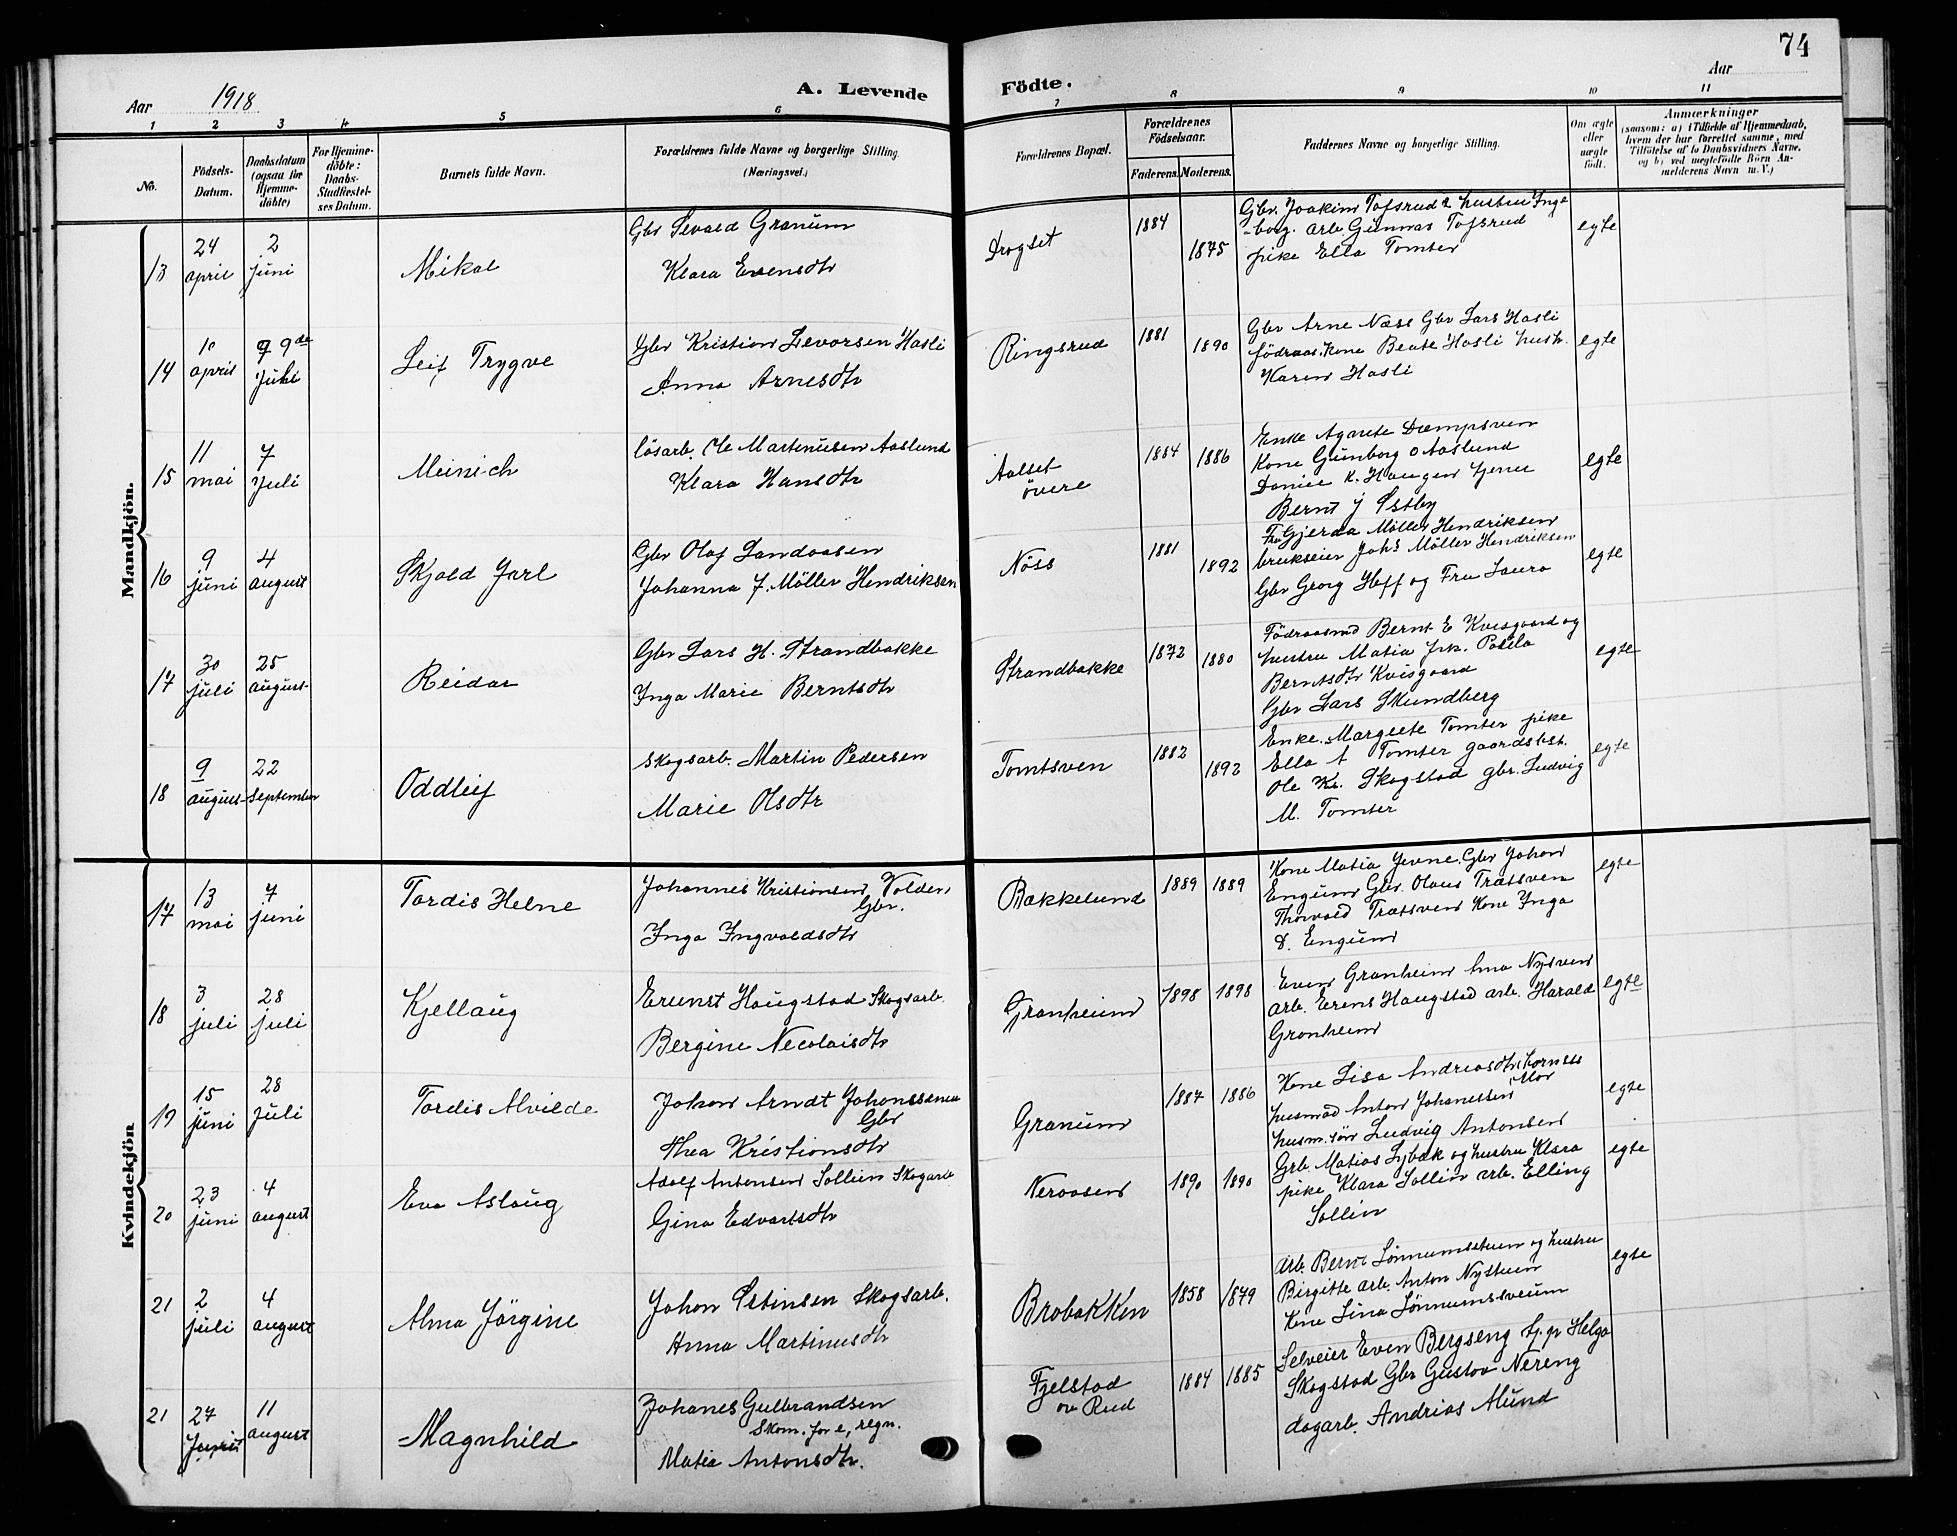 74
Aar 1918
A. Levende Födte.
Aar
1 2 3 4 5 6 7 8 9 10 11
No.
Födsels-
Datum.
Daabsdatum
(ogsaa for
Hjemme-
döbte)
For Hjemme-
döbte:
Daabs-
Stadfæstel-
ses Datum.
Barnets fulde Navn.
Forældrenes fulde Navne og borgerlige Stilling.
(Næringsvei.)
Forældrenes Bopæl.
Forældrenes
Födselsaar.
Faderens. Moderens.
Faddernes Navne og borgerlige Stilling.
Om ægte
eller
uægte
født.
Anmærkninger
(saasom: a) i Tilfælde af Hjemmedaab,
hvem der har forrettet samme, med
Tilföielse af to Daabsvidners Navne,
og b) ved uægtefödte Börn An-
melderens Navn m. V.)
Mandkjön.
13
24
april
2
juni
Mikal
Gbr Sevald Granum
Klara Evensdtr
Drogset
1884
1875
Gbr. Joakim Tofsrud & hustru Inge
-borg. arb. Gunnar Tofsrud
pike Ella Tomter
egte
14
10
april
9de
Juli
Leif Trygve
Gbr Kristian Levorsen Hasli
Anna Arnesdtr
Ringsrud
1881
1890
Gbr Arne Næss Gbr Lars Hasli
födraas.kone Beate Hasli hush.
Karen Hasli
egte
15
11
mai
7
Juli
Meinich
lösarb. Ole Martinusen Aaslund
Klara Hansdtr
Aalset
övere
1884
1886
Enke Agnete Dæmpsven
Kone Gunborg O Aaslund
Daniel K. Haugen
Bernt J Østby
egte
16
9
juni
4
august
Skjold Jarl
Gbr Olaf Landaasen
Johanna J. Möller Hendriksen
Nöss
1881
1892
Gjerda Möller Hendriksen
brukseier Johs Möller Hendriksen
Gbr Georg Hoff og Fru Laura
egte
17
30
juli
25
august
Reidar
Gbr Lars H. Strandbakke
Inga Marie Berntsdtr
Strandbakke
1872
1880
Födraasmd Bernt E Kvisgaard og
hustru Matia
Berntsdtr Kvisgaard
Gbr Lars Skundberg
egte
18
9
august
22
September
Oddleif
skogsarb. Martin Pedersen
Marie Olsdtr
Tomtsven
1882
1892
Enke. Margrete Tomter pike
Ella A Tomter gaardsbest.
Ole Kr. Skogstad gbr. Ludvig
M. Tomter
egte
Kvindekjön
17
13
mai
7
juni
Tordis Helne
Johannes Kristiansen Volden,
Gbr.
Inga Ingvaldsdtr
Bakkelund
1889
1889
Kone Matia Jevne. Gbr Johan
Engum Gbr. Olaus Trætsven
Thorvald Trætsven Kone Inga
D. Engum
egte
18
3
juli
28
juli
Kjellaug
Erunst Haugstad Skogsarb.
Bergine Necolaisdtr
Granheim
1898
1898
Even Granheim Ama Nysven
arb. Erens Haugstad arb. Harald
Granheim
egte
19
15
juni
28
Juli
Tordis Alvilde
Johan Arndt Johanssenen
Gbr
Thea Kristiansdtr
Granum
1887
1886
Kone Lisa Andreasdtr, barnets
Mor
husmad Anton Johanessen
husm.sön Ludvig Antonsen
egte
20
23
juni
4
august
Eva Aslaug
Adolf Antonsen Sollien Skogarb
Gina Edvartsdtr
Neroasen
1890
1890
Grb. Matias Lybæk og hustru Klara
pike Klara Sollin arb. Elling
Sollin
egte
21
2
juli
4
august
Alma Jörgine
Johan Østinsen Skogsarb.
Anna Martinusdtr
Brobakken
1858
1879
Arb. Bernt Lönnumsstuen og hustru
Birgitte arb. Anton Nystuen
Kone Lina Lönnumssveum
egte
21
27
11
august
Magnhild
Johanes Gulbrandsen
Skom. for e, regn.
Matia Antonsdtr.
Fjelstad
Rud
1884
1885
Selveier Even Bergseng Helga
Skogstad Gbr Gustav Nereng
dagarb. Andrias Alund